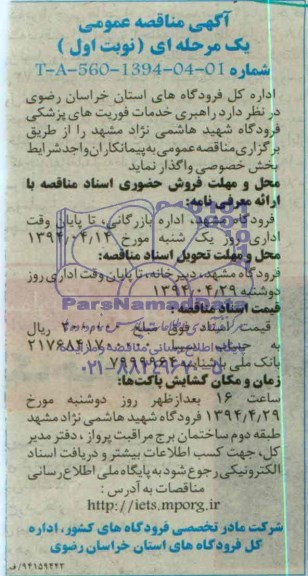 آگهی مناقصه عمومی
یک مرحله ای ( نوبت اول )
شماره T-A-560-1394-04-01
اداره کل فرودگاه های استان خراسان رضوی
در نظر دارد راهبری خدمات فوریت های پزشکی
فرودگاه شهید هاشمی نژاد مشهد را از طریق
برگزاری مناقصه عمومی به پیمانکاران واجد شرایط
بخش خصوصی واگذار نماید
محل و مهلت فروش حضوری اسناد مناقصه با
ارائه معرفی نامه:
فرودگاه مشهد، اداره بازرگانی، تا پایان وقت
اداری روز یک شنبه مورخ ۱۳۹۴،۰۴،۱۴
محل و مهلت تحویل اسناد مناقصه:
فرودگاه مشهد، دبیرخانه، تا پایان وقت اداری روز
دوشنبه ۱۳۹۴،۰۴،۲۹
ParsNamadData
قیمت اسناد مناقصه :
قیمت اسناد فوق مبلغ ریال
به حساب سیبا
پایگاه اطلاع رسانی مناقصه و مزایده
بانک ملی با شناسه
۰۲۱-۸۸۳۴۹۶۷۰-۵
زمان و مکان گشایش پاکت‌ها:
ساعت ۱۶ بعدازظهر روز دوشنبه مورخ
۱۳۹۴/۴/۲۹ فرودگاه شهید هاشمی نژاد مشهد
طبقه دوم ساختمان برج مراقبت پرواز ، دفتر مدیر
کل، جهت کسب اطلاعات بیشتر و دریافت اسناد
الکترونیکی رجوع شود به پایگاه ملی اطلاع رسانی
مناقصات به آدرس :
http://iets.mporg.ir
شرکت مادر تخصصی فرودگاه های کشور، اداره
کل فرودگاه های استان خراسان رضوی
۹۴۱۵۹۴۴۳/ف